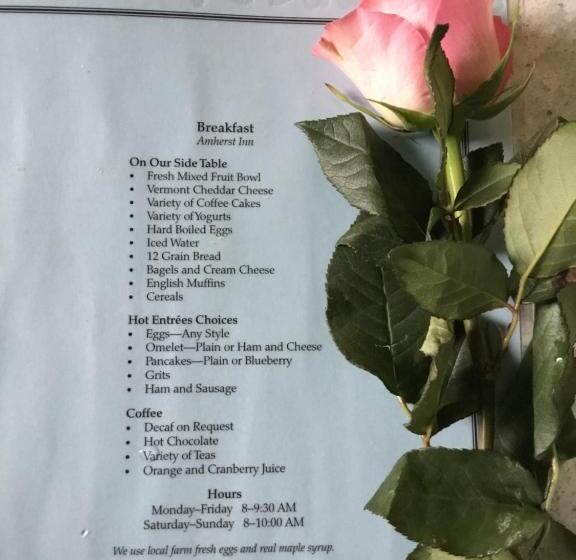 Breakfast
Amherst Inn
On Our Side Table
• Fresh Mixed Fruit Bowl
• Vermont Cheddar Cheese
• Variety of Coffee Cakes
• Variety of Yogurts
• Hard Boiled Eggs
• Iced Water
• 12 Grain Bread
• Bagels and Cream Cheese
• English Muffins
• Cereals
Hot Entrées Choices
• Eggs—Any Style
• Omelet—Plain or Ham and Cheese
• Pancakes—Plain or Blueberry
• Grits
• Ham and Sausage
Coffee
• Decaf on Request
• Hot Chocolate
• Variety of Teas
• Orange and Cranberry Juice
Hours
Monday–Friday 8–9:30 AM
Saturday–Sunday 8–10:00 AM
We use local farm fresh eggs and real maple syrup.